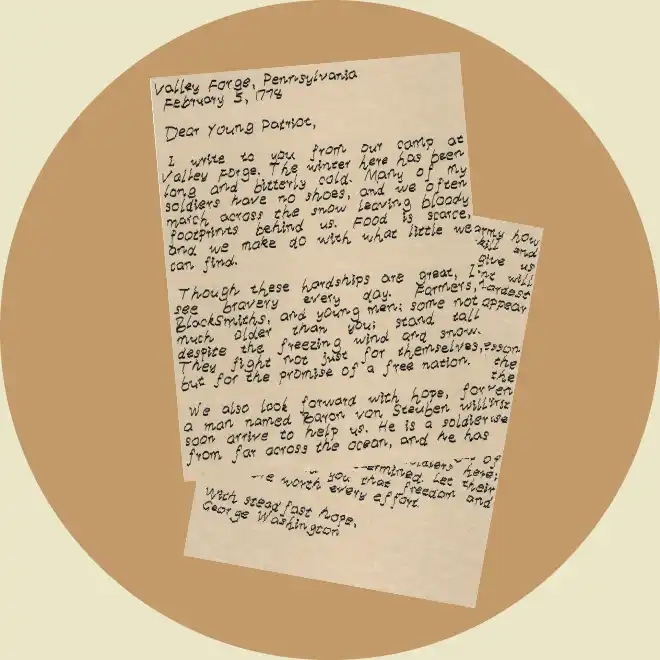 Valley Forge, Pennsylvania
February 5, 1778
Dear Young Patriot,
I write to you from our camp at
Valley Forge. The winter here has been
long and bitterly cold. Many of my
soldiers have no shoes, and we often
march across the snow leaving bloody
footprints behind us. Food is scarce,
and we make do with what little we
can find.
Though these hardships are great, I
see bravery every day. Farmers,
Blacksmiths, and young men; some not
much older than you; stand tall
despite the freezing wind and snow.
They fight not just for themselves,
but for the promise of a free nation.
We also look forward with hope, for
a man named Baron von Steuben will
soon arrive to help us. He is a soldier
from far across the ocean, and he has
army how
skill and
give us
will
hardest
appear
the
the
of
determined. Let their
worth you that freedom and
every effort.
With steadfast hope,
George Washington